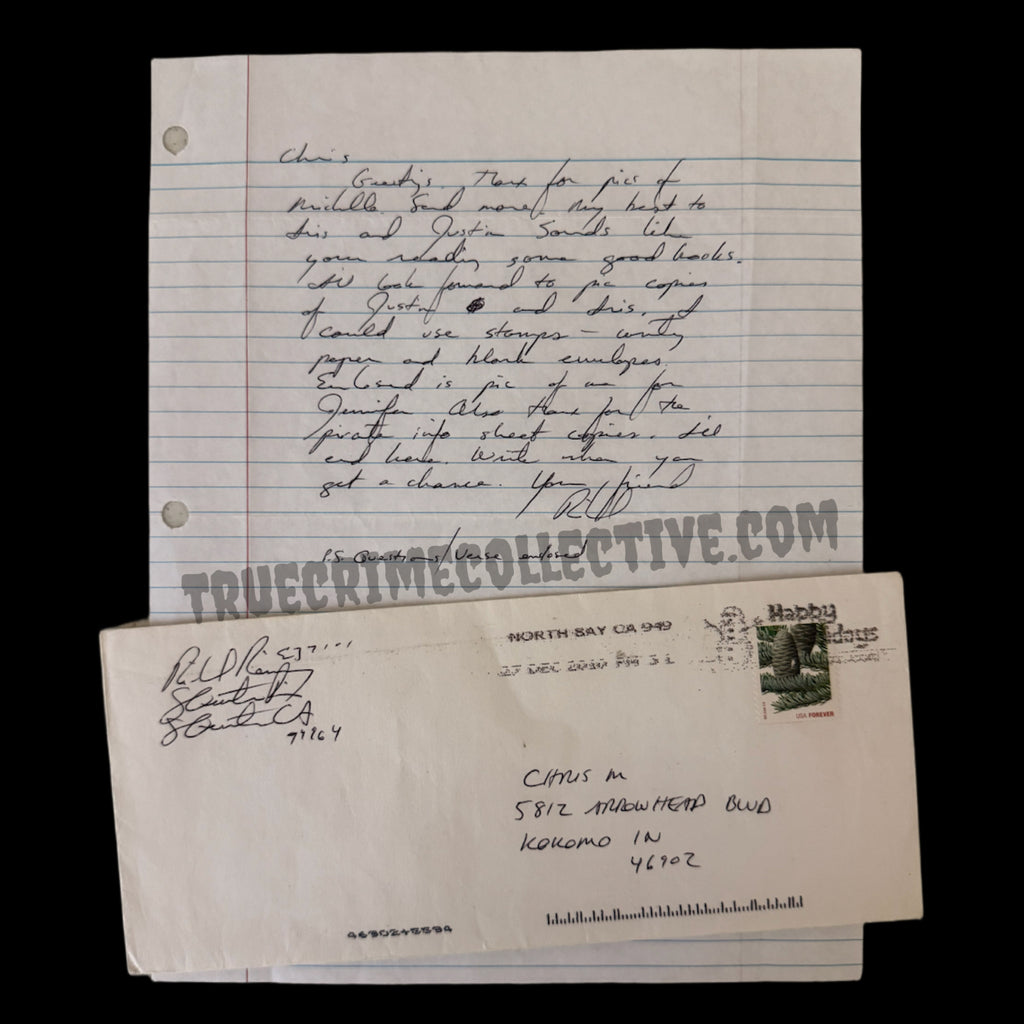 Chris
Greetings. Thanx for pics of
Michelle. Send more. My best to
Iris and Justin Sounds like
your reading some good books.
I'll look forward to pic copies
of Justin and Iris. I
could use stamps - writing
paper and blank envelopes.
Enclosed is pic of me for
Jennifer Also thanx for the
pirate info sheet copies. I'll
end here. Write when you
get a chance. Your friend
P.S. Questions/Verse enclosed
TRUECRIMECOLLECTIVE.COM
NORTH BAY CA 949
27 DEC 2010 PM 3 L
Happy
USA FOREVER
CHRIS M
5812 ARROWHEAD BLVD
KOKOMO IN
46902